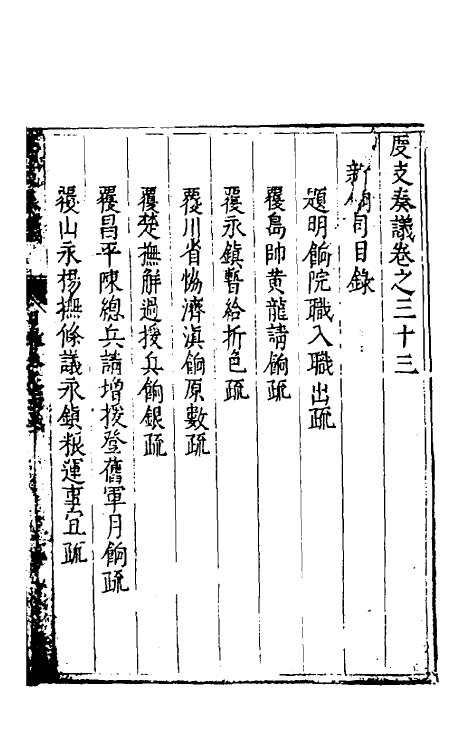 度支奏議卷之三十三
新餉司目錄
題明餉院職入職出疏
覆島帥黄龍請餉疏
覆永鎮暫給折色疏
覆川省恊濟滇餉原數疏
覆楚撫解過援兵餉銀疏
覆昌平陳總兵請增援登舊軍月餉疏
覆山永楊撫條議永鎮粮運事宜疏